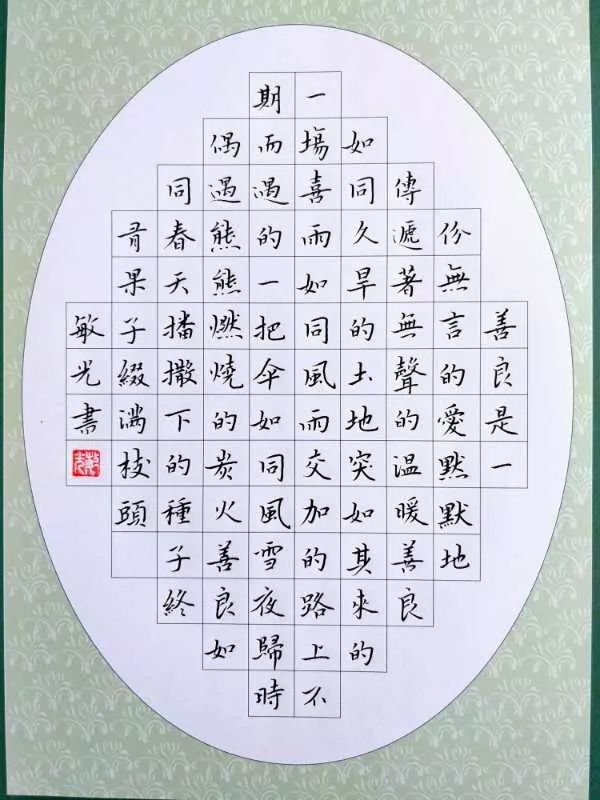 善良是一
份無言的愛默默地
傳遞著無聲的溫暖善良
如同久旱的土地突如其來的
一塲喜雨如同風雨交加的路上不
期而遇的一把傘如同風雪夜歸時
偶遇熊熊燃燒的炭火善良如
同春天播撒下的種子終
有果子綴滿枝頭
敏光書